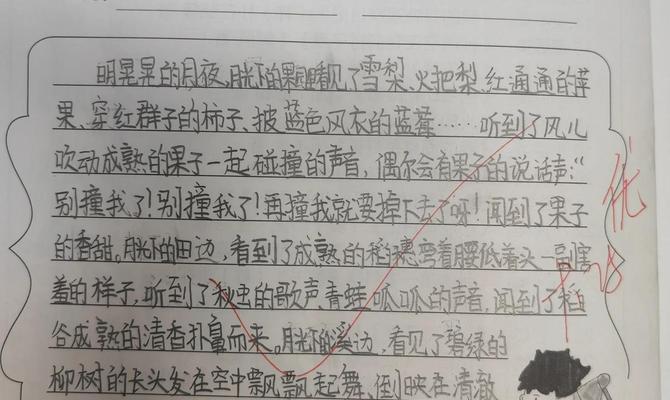 明晃晃的月夜,月光下的果园瞧见了雪梨、火把梨、红通通的苹
果、穿红群子的柿子、披蓝色风衣的蓝莓……听到了风儿
吹动成熟的果子一起碰撞的声音,偶尔会有果子的说话声:“
别撞我了!别撞我了!再撞我就要掉下去了呀!闻到了果子
的香甜。月光下的田边,看到了成熟的稻穗弯着腰低着头一副害
羞的样子,听到了秋虫的歌声、青蛙呱呱的声音,闻到了稻
谷成熟的清香扑鼻而来。月光下的溪边,看见了碧绿的
柳树的长头发在空中飘飘起舞、倒映在清澈
优